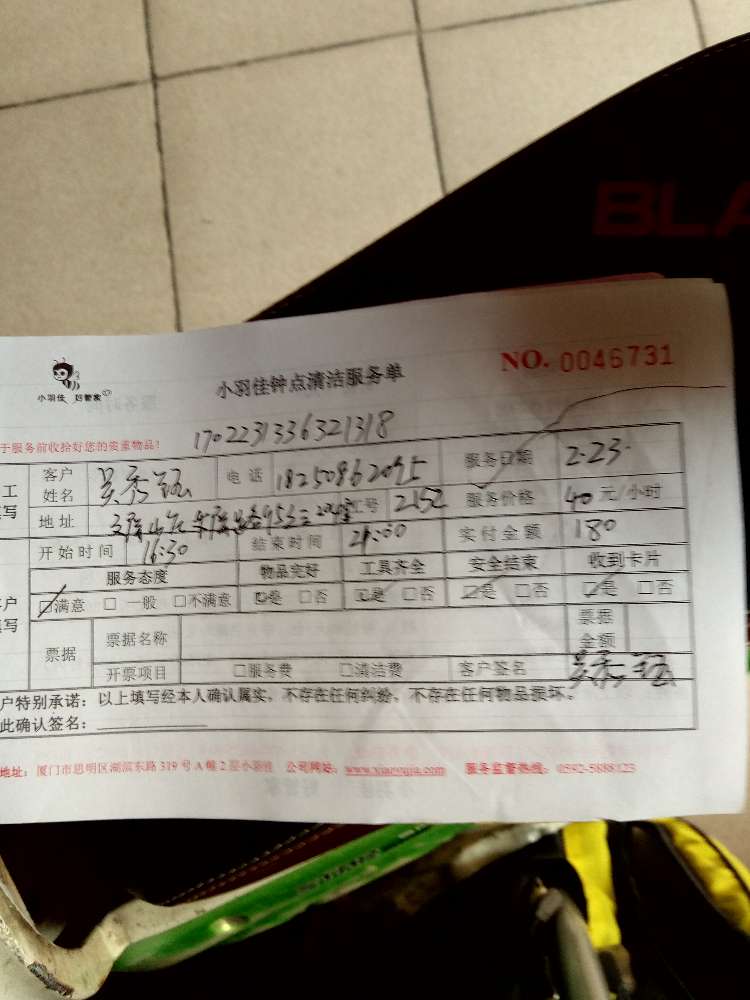 BLA
NO. 0046731
小羽佳钟点清洁服务单
小羽佳 好管家
于服务前收拾好您的贵重物品!
1702231336321318
工 客户姓名 吴秀 电话 18250862095 服务日期 2.23.
写 地址 工号 2152 服务价格 40元/小时
开始时间 16:30 结束时间 21:00 实付金额 180
服务态度 物品完好 工具齐全 安全结束 收到卡片
户 □满意 □ 一般 □不满意 □是 □否 □是 □否 □是 □否 □是 □否
写 票据 票据名称 票据金额
开票项目 □服务费 □清洁费 客户签名 吴秀
户特别承诺:以上填写经本人确认属实,不存在任何纠纷,不存在任何物品损坏。
此确认签名:
地址:厦门市思明区湖滨东路319号A幢2层小羽佳 公司网站:www.xiaoyujia.com 服务监督热线:0592-5888123